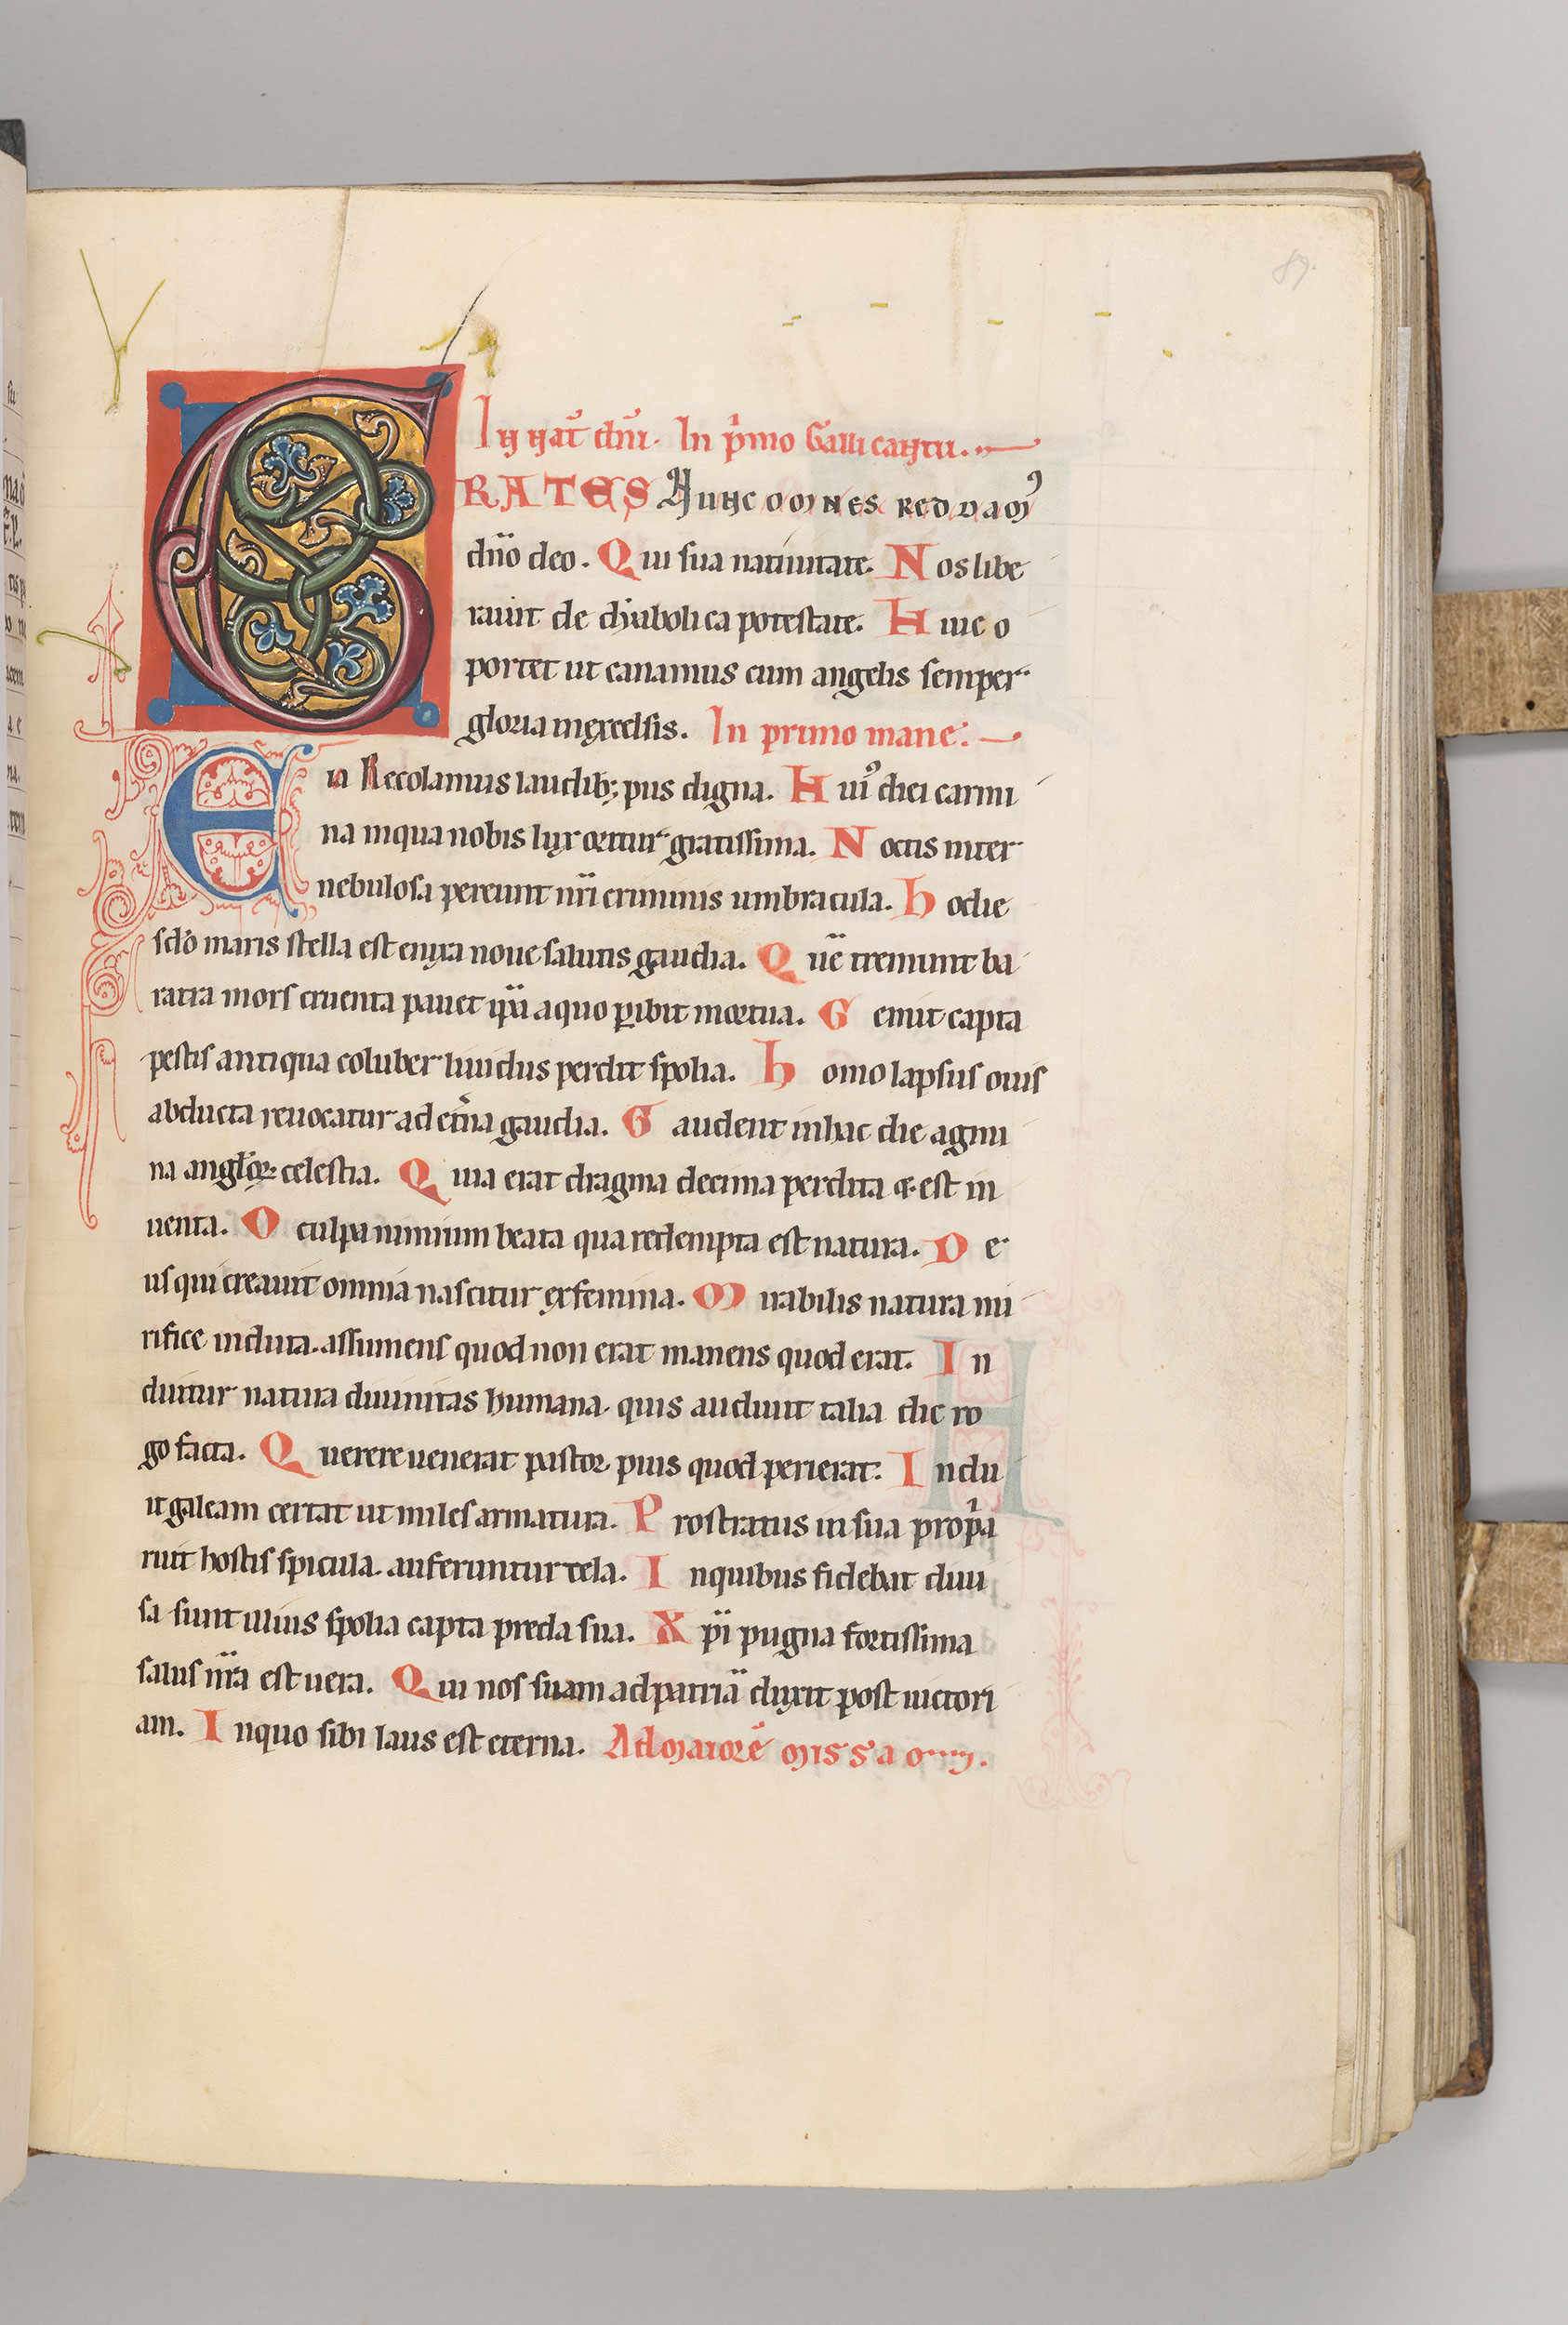 89.
In nat̄ dn̄i. In p̍mo Galli cantu.
GRATES Nunc omnes reddamꝰ
dn̄o deo. Qui sua natiuitate. Nos libe
rauit de dyabolica potestate. Huic o
portet ut canamus cum angelis semper
gloria inexcelsis. In primo mane.
Eia Recolamus laudib; piis digna. Huiꝰ diei carmi
na inqua nobis lux oritur gratissima. Noctis inter
nebulosa pereunt nr̄i criminis umbracula. Hodie
sc̄lo maris stella est enixa noue salutis gaudia. Quē tremunt ba
ratra mors cruenta pauet ip̄a aquo ꝑibit mortua. Gemit capta
pestis antiqua coluber liuidus perdit spolia. Homo lapsus ouis
abducta reuocatur ad et̄na gaudia. Gaudent inhac die agmi
na anglōꝝ celestia. Quia erat dragma decima perdita & est in
uenta. O culpa nimium beata qua redempta est natura. De
us qui creauit omnia nascitur exfemina. Mirabilis natura mi
rifice induta. assumens quod non erat manens quod erat. In
duitur natura diuinitas humana. quis audiuit talia dic ro
go facta. Querere uenerat pastor pius quod perierat. Indu
it galeam certat ut miles armatura. Prostratus in sua prop̍a
ruit hostis spicula. auferuntur tela. Inquibus fidebat diui
sa sunt illius spolia capta preda sua. Xp̄i pugna fortissima
salus nr̄a est uera. Qui nos suam ad patriā duxit post uictori
am. Inquo sibi laus est eterna. Ad maiorē missam.